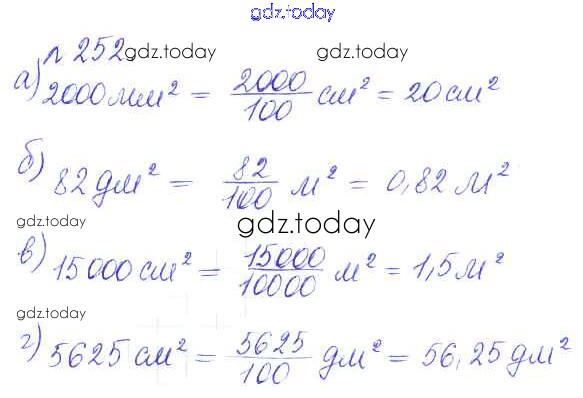 gdz.today
№ 252
gdz.today gdz.today
а) 2000 мм² = 2000/100 см² = 20 см²
gdz.today gdz.today
б) 82 дм² = 82/100 м² = 0,82 м²
gdz.today
в) 15000 см² = 15000/10000 м² = 1,5 м²
gdz.today gdz.today
г) 5625 см² = 5625/100 дм² = 56,25 дм²